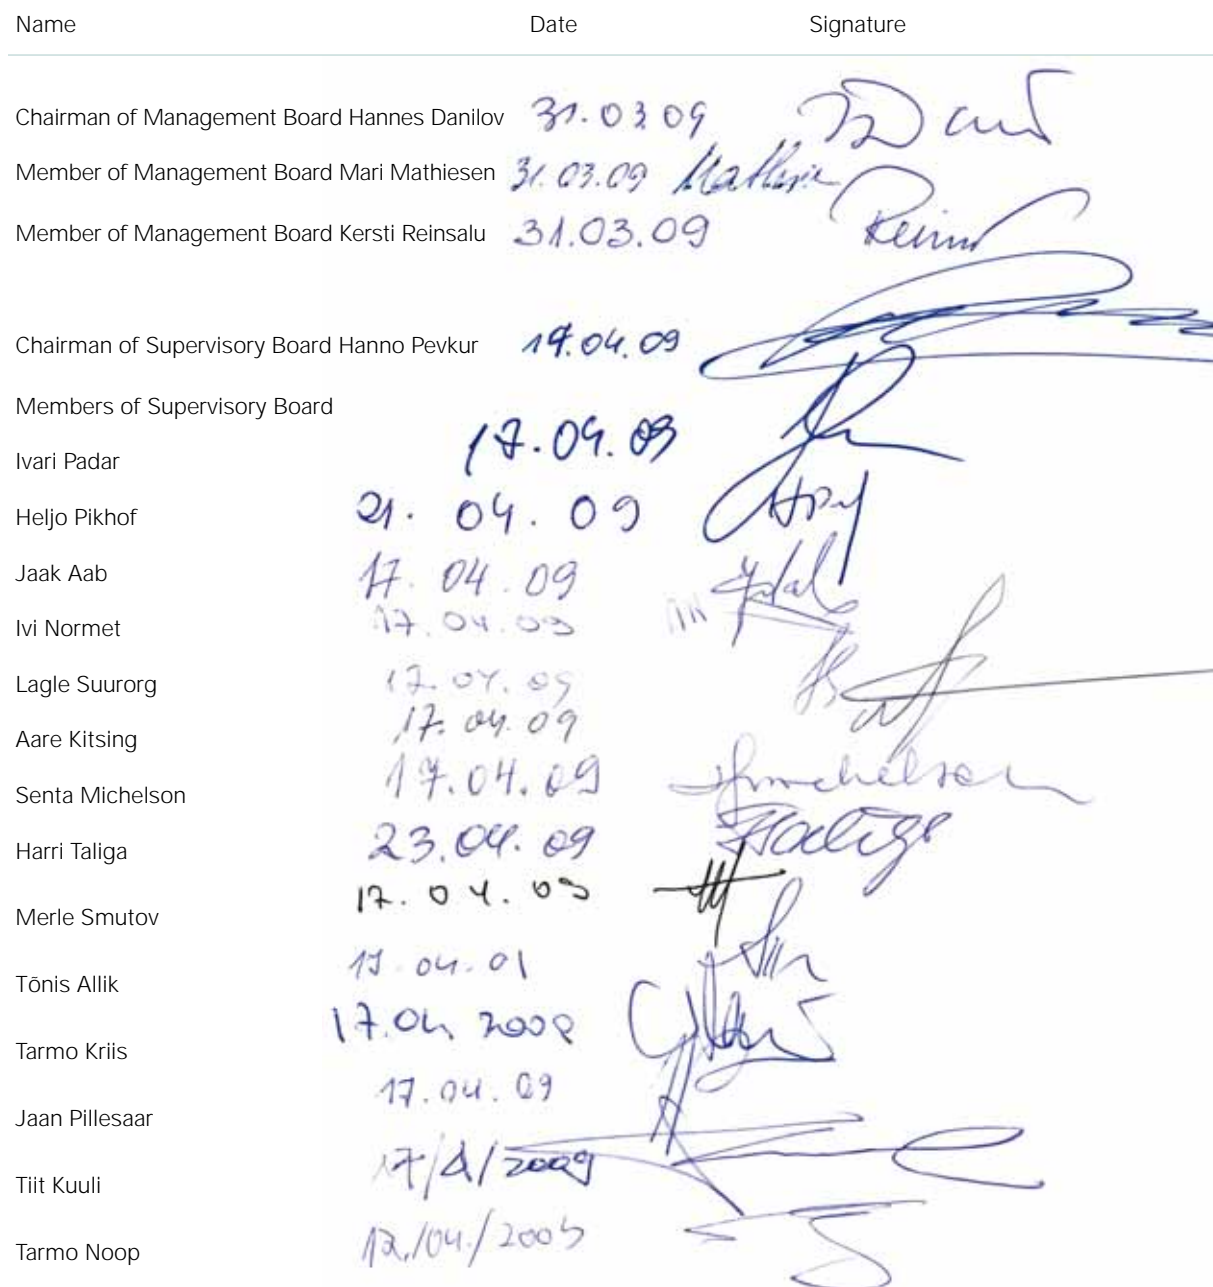 Name Date Signature
Chairman of Management Board Hannes Danilov 31.03.09
Member of Management Board Mari Mathiesen 31.03.09
Member of Management Board Kersti Reinsalu 31.03.09
Chairman of Supervisory Board Hanno Pevkur 17.04.09
Members of Supervisory Board
Ivari Padar 17.04.09
Heljo Pikhof 21. 04. 09
Jaak Aab 17. 04. 09
Ivi Normet 17. 04. 09
Lagle Suurorg 17. 04. 09
Aare Kitsing 17. 04. 09
Senta Michelson 17.04.09
Harri Taliga 23.04.09 Taliga
Merle Smutov 17. 04. 09
Tõnis Allik
Tarmo Kriis
Jaan Pillesaar 17.04.09
Tiit Kuuli 17/4/2009
Tarmo Noop